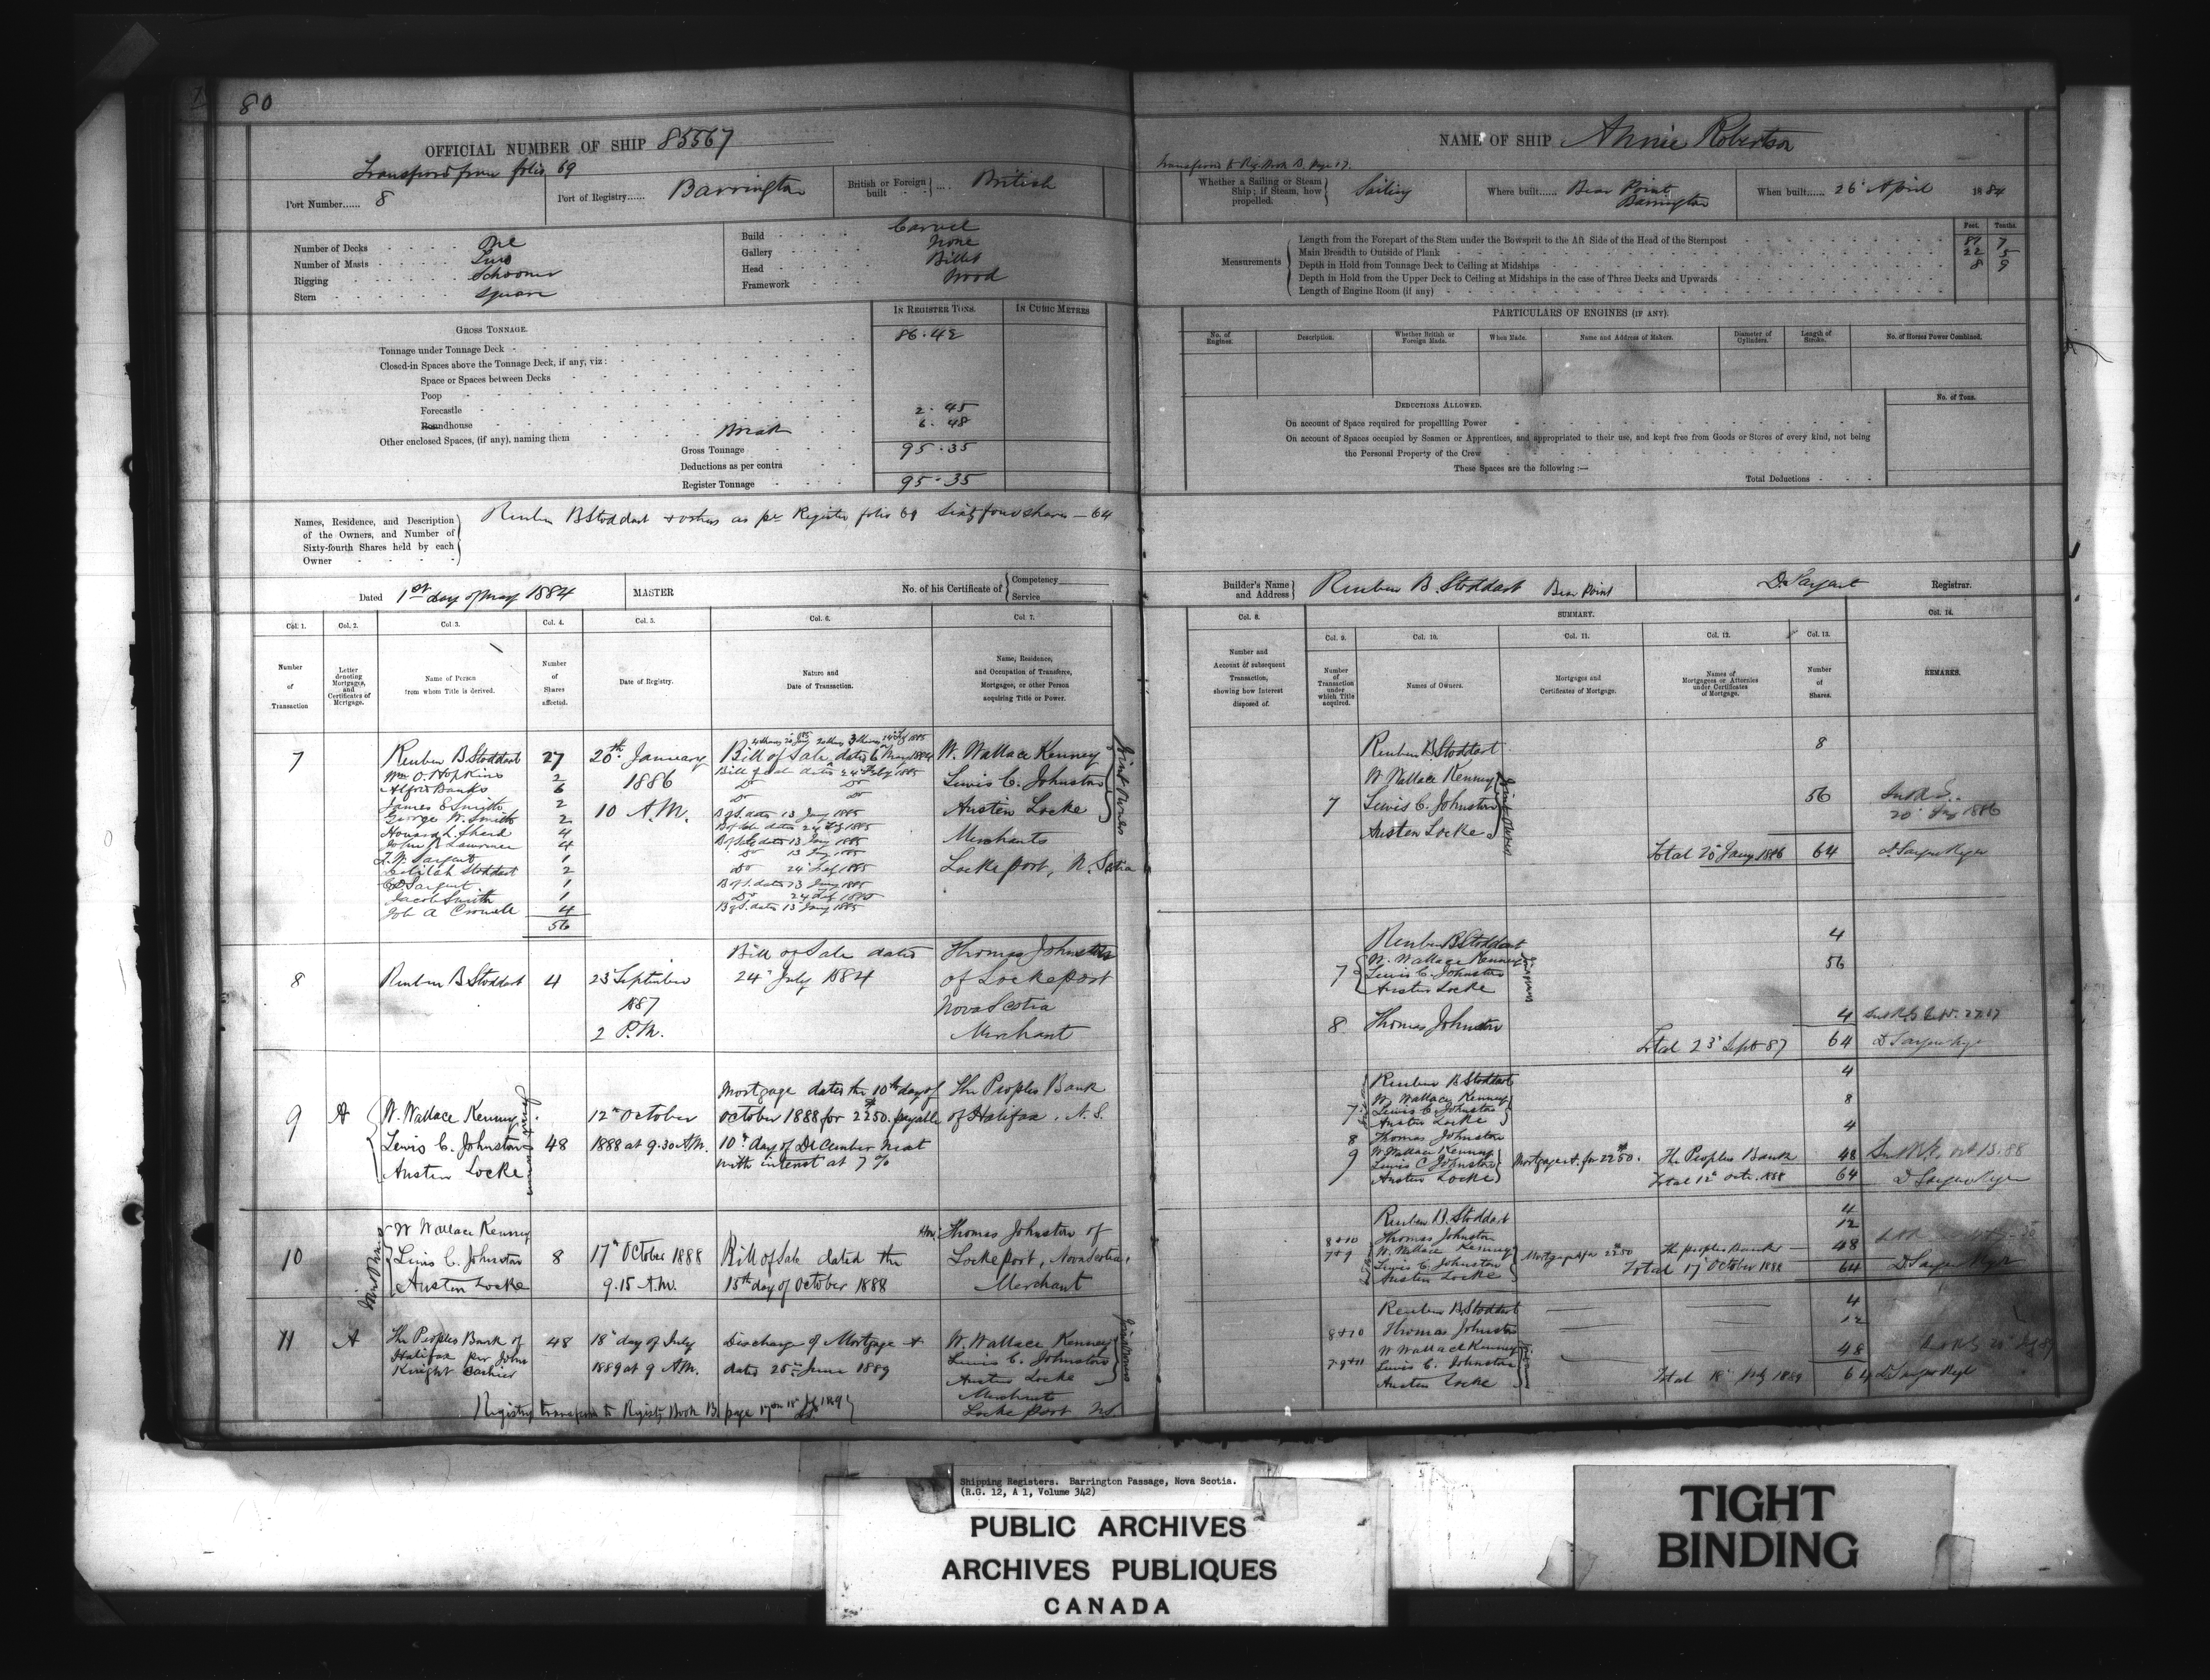 80
OFFICIAL NUMBER OF SHIP 85567
Transferred from folio 69
Port Number...... 8
Port of Registry...... Barrington
British or Foreign built .... British
Number of Decks One
Number of Masts Two
Rigging Schooner
Stern Square
Build Carvel
Gallery None
Head Billet
Framework Wood
GROSS TONNAGE.
IN REGISTER TONS.
IN CUBIC METRES
Tonnage under Tonnage Deck 86.42
Closed-in Spaces above the Tonnage Deck, if any, viz:
Space or Spaces between Decks
Poop
Forecastle 2.45
Roundhouse 6.48
Other enclosed Spaces, (if any), naming them Break
Gross Tonnage 95.35
Deductions as per contra
Register Tonnage 95.35
Names, Residence, and Description of the Owners, and Number of Sixty-fourth Shares held by each Owner
Reuben B Stoddart & others as per Register folio 69 Sixty four shares — 64
Dated 1st day of May 1884
MASTER
No. of his Certificate of Competency Service
Col. 1. Col. 2. Col. 3. Col. 4. Col. 5. Col. 6. Col. 7.
Number of Transaction
Letter denoting Mortgages, and Certificates of Mortgage.
Name of Person from whom Title is derived.
Number of Shares affected.
Date of Registry.
Nature and Date of Transaction.
Name, Residence, and Occupation of Transferee, Mortgagee, or other Person acquiring Title or Power.
7 Reuben B. Stoddart 27 20th January Bill of Sale dated 6 May 1884 W. Wallace Kenney
Wm O. Hopkins 2 Bill of Sale dated 24 Feby 1885
Alfred Banks 6 1886 Do Do Lewis C. Johnston
James E Smith 2 Do
George W. Smith 2 10 A.M. B of S. dated 13 Jany 1885 Austen Locke
Howard L. 4 B of Sale dated 24 Feby 1885
John R Lawrence 4 B of Sale dated 13 Jany 1885 Merchants
T. W. Sargent 1 Do 13 Jany 1885
Delilah Stoddart 2 Do 24 Feby 1885 Lockeport, N. Scotia
Sargent 1 B of S. dated 13 Jany 1885
Jacob Smith 1 Do 24 Feby 1885
Job A Crowell 4 B of S. dated 13 Jany 1885
56
Joint Owners
8 Reuben B Stoddart 4 23 September 1887 2 P.M.
Bill of Sale dated 24 July 1884
Thomas Johnston
of Lockeport
Nova Scotia
Merchant
9 A W. Wallace Kenney
Lewis C. Johnston 48
Austen Locke
12th October 1888 at 9.30 A.M.
Mortgage dated the 10th day of
October 1888 for $2250. payable
10th day of December next
with interest at 7 %
The Peoples Bank
of Halifax. N. S.
10 W Wallace Kenney
Lewis C. Johnston 8
Austen Locke
Joint Owners
17th October 1888
9.15 A.M.
Bill of Sale dated the
15th day of October 1888
Thomas Johnston of
Lockeport, Nova Scotia,
Merchant
11 A The Peoples Bank of
Halifax per John
Knight Cashier
48 18th day of July
1889 at 9 A.M.
Discharge of Mortgage A
dated 28th June 1889
W. Wallace Kenney
Lewis C. Johnston
Austen Locke
Merchants
Lockeport NS
Joint Owners
Registry transferred to Registry Book B. page 17
NAME OF SHIP Annie Robertson
Transferred to Reg. Book B. page 17.
Whether a Sailing or Steam Ship; if Steam, how propelled. Sailing
Where built...... Bear Point Barrington
When built...... 26 April 1884
Feet. Tenths.
Measurements
Length from the Forepart of the Stem under the Bowsprit to the Aft Side of the Head of the Sternpost 87 7
Main Breadth to Outside of Plank 22 5
Depth in Hold from Tonnage Deck to Ceiling at Midships 8 9
Depth in Hold from the Upper Deck to Ceiling at Midships in the case of Three Decks and Upwards
Length of Engine Room (if any)
PARTICULARS OF ENGINES (IF ANY).
No. of Engines.
Description.
Whether British or Foreign Made.
When Made.
Name and Address of Makers.
Diameter of Cylinders.
Length of Stroke.
No. of Horses Power Combined.
DEDUCTIONS ALLOWED.
No. of Tons.
On account of Space required for propelling Power
On account of Spaces occupied by Seamen or Apprentices, and appropriated to their use, and kept free from Goods or Stores of every kind, not being
the Personal Property of the Crew
These Spaces are the following:—
Total Deductions
Builder's Name and Address Reuben B. Stoddart Bear Point
D. Sargent Registrar.
Col. 8. SUMMARY. Col. 14.
Col. 9. Col. 10. Col. 11. Col. 12. Col. 13.
Number and Account of subsequent Transaction, showing how Interest disposed of.
Number of Transaction under which Title acquired.
Names of Owners.
Mortgages and Certificates of Mortgage.
Names of Mortgagees or Attornies under Certificates of Mortgage.
Number of Shares.
REMARKS.
Reuben B. Stoddart 8
W Wallace Kenney
7 Lewis C. Johnston 56
Austen Locke
Joint Owners
Total 20 Jany 1886 64 D. Sargent Regr
Reuben B Stoddart 4
W. Wallace Kenney 56
7 Lewis C. Johnston
Austen Locke
8 Thomas Johnston 4
Total 23 Sept 87 64 D Sargent Regr
Reuben B Stoddart 4
W Wallace Kenney 8
7 Lewis C Johnston
Austen Locke
8 Thomas Johnston 4
9 W Wallace Kenney
Lewis C Johnston Mortgage A. for $2250. The Peoples Bank 48
Austen Locke Total 12 Octr. 1888 64 D Sargent Regr
Reuben B. Stoddart 4
8 & 10 Thomas Johnston 12
7 & 9 W. Wallace Kenney Mortgage A for $2250 The Peoples Bank 48
Lewis C. Johnston
Austen Locke Total 17 October 1888 64 D Sargent Regr
Reuben B. Stoddart 4
8 & 10 Thomas Johnston 12
W Wallace Kenney 48
7 9 & 11 Lewis C. Johnston
Austen Locke Total 18 July 1889 64 D Sargent Regr
Shipping Registers. Barrington Passage, Nova Scotia.
(R.G. 12, A 1, Volume 342)
PUBLIC ARCHIVES
ARCHIVES PUBLIQUES
CANADA
TIGHT
BINDING